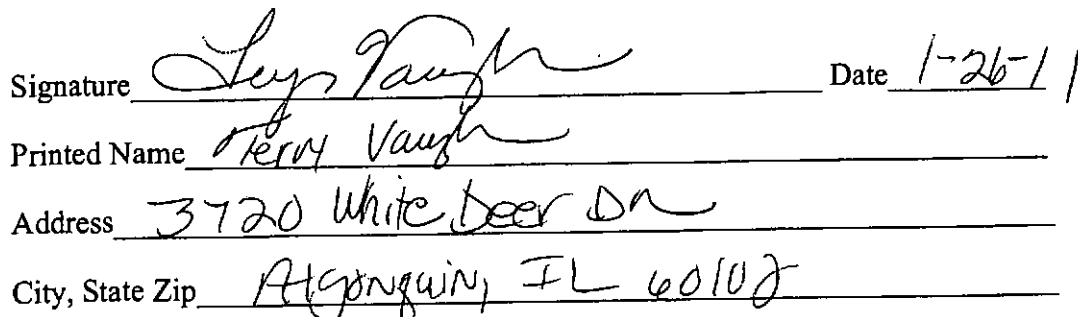 Signature Terry Vaughn Date 1-26-11
Printed Name Terry Vaughn
Address 3720 White Deer Dr
City, State Zip Algonquin, IL 60102